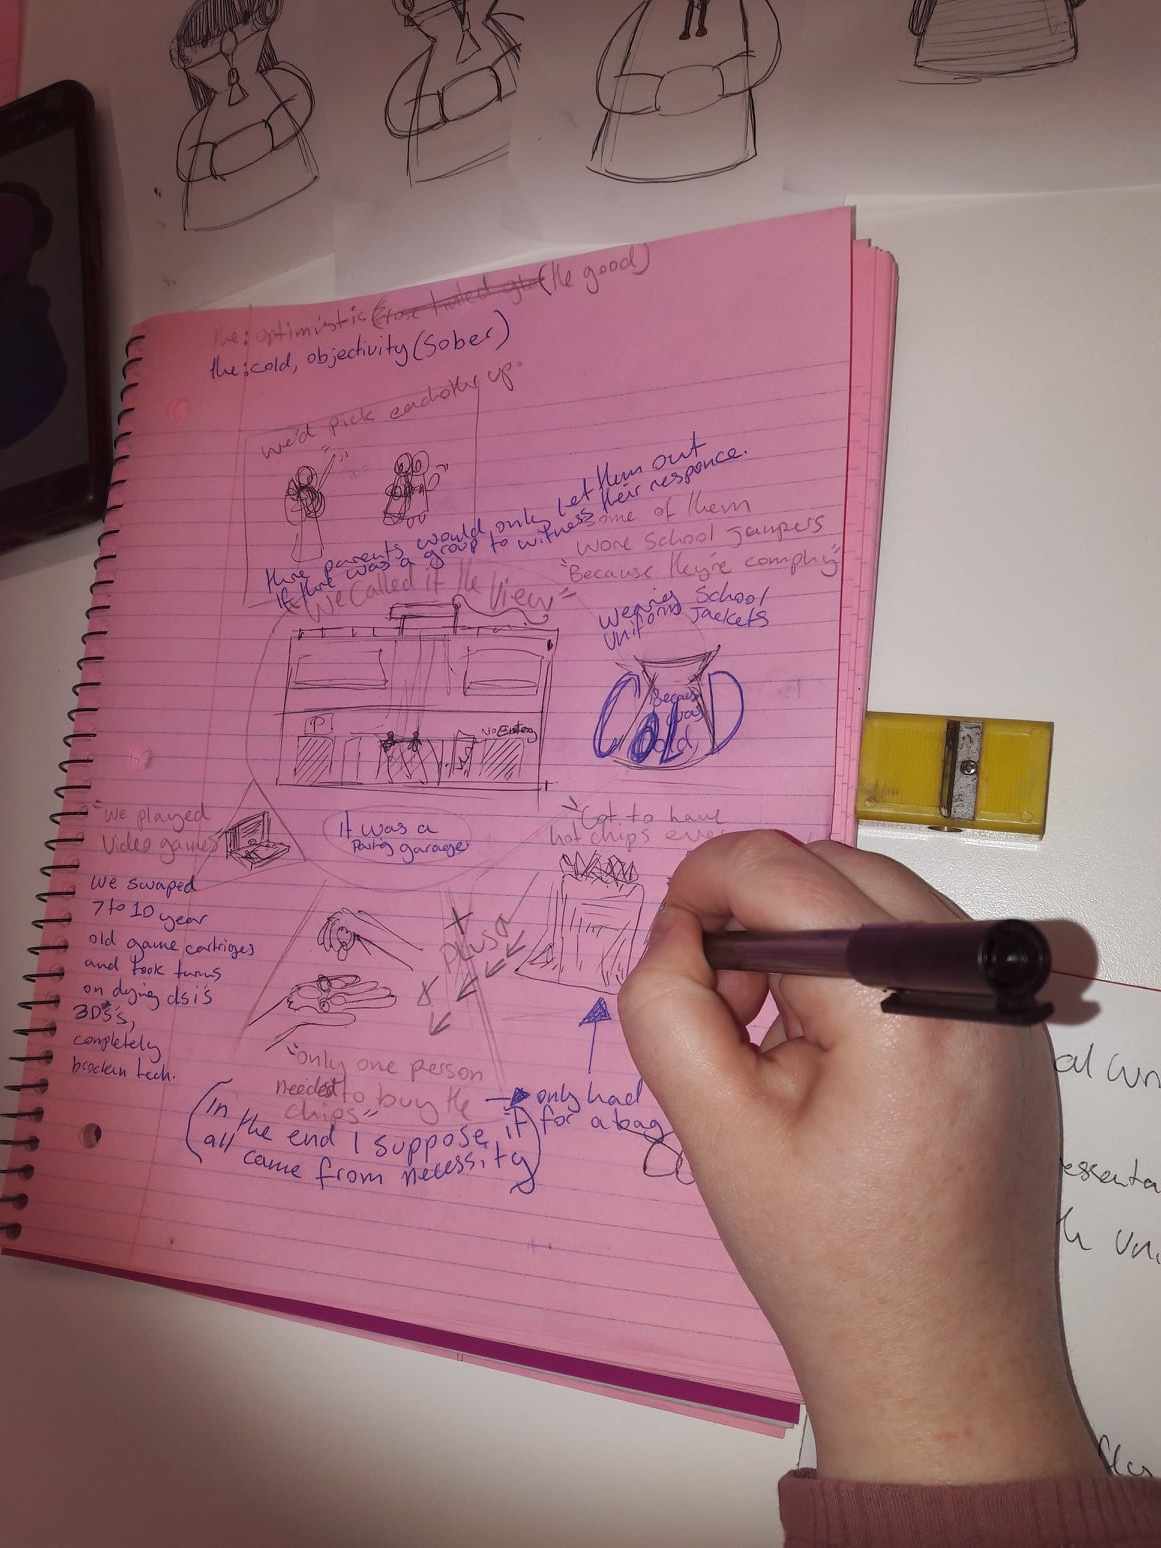 the: optimistic (the good)
the: cold, objectivity (sober)
we'd pick eachother up.
thire parents would only let them out
if thire was a group to witness their responce.
some of them
wore school jumpers
"Because they're comphy"
"We called it the view"
wearing school
uniforms jackets
COLD
Because
it was
cold
P
No Entery
"We played
Video games"
It was a
Parking garage
"Got to have
hot chips ever
We swaped
7 to 10 year
old game cartriges
and took turns
on dying dsi's
3DS's,
completely
brocken tech.
+
plus a
"only one person
needed to buy the
chips"
only had
for a bag
(in the end I suppose it
all came from necessity)